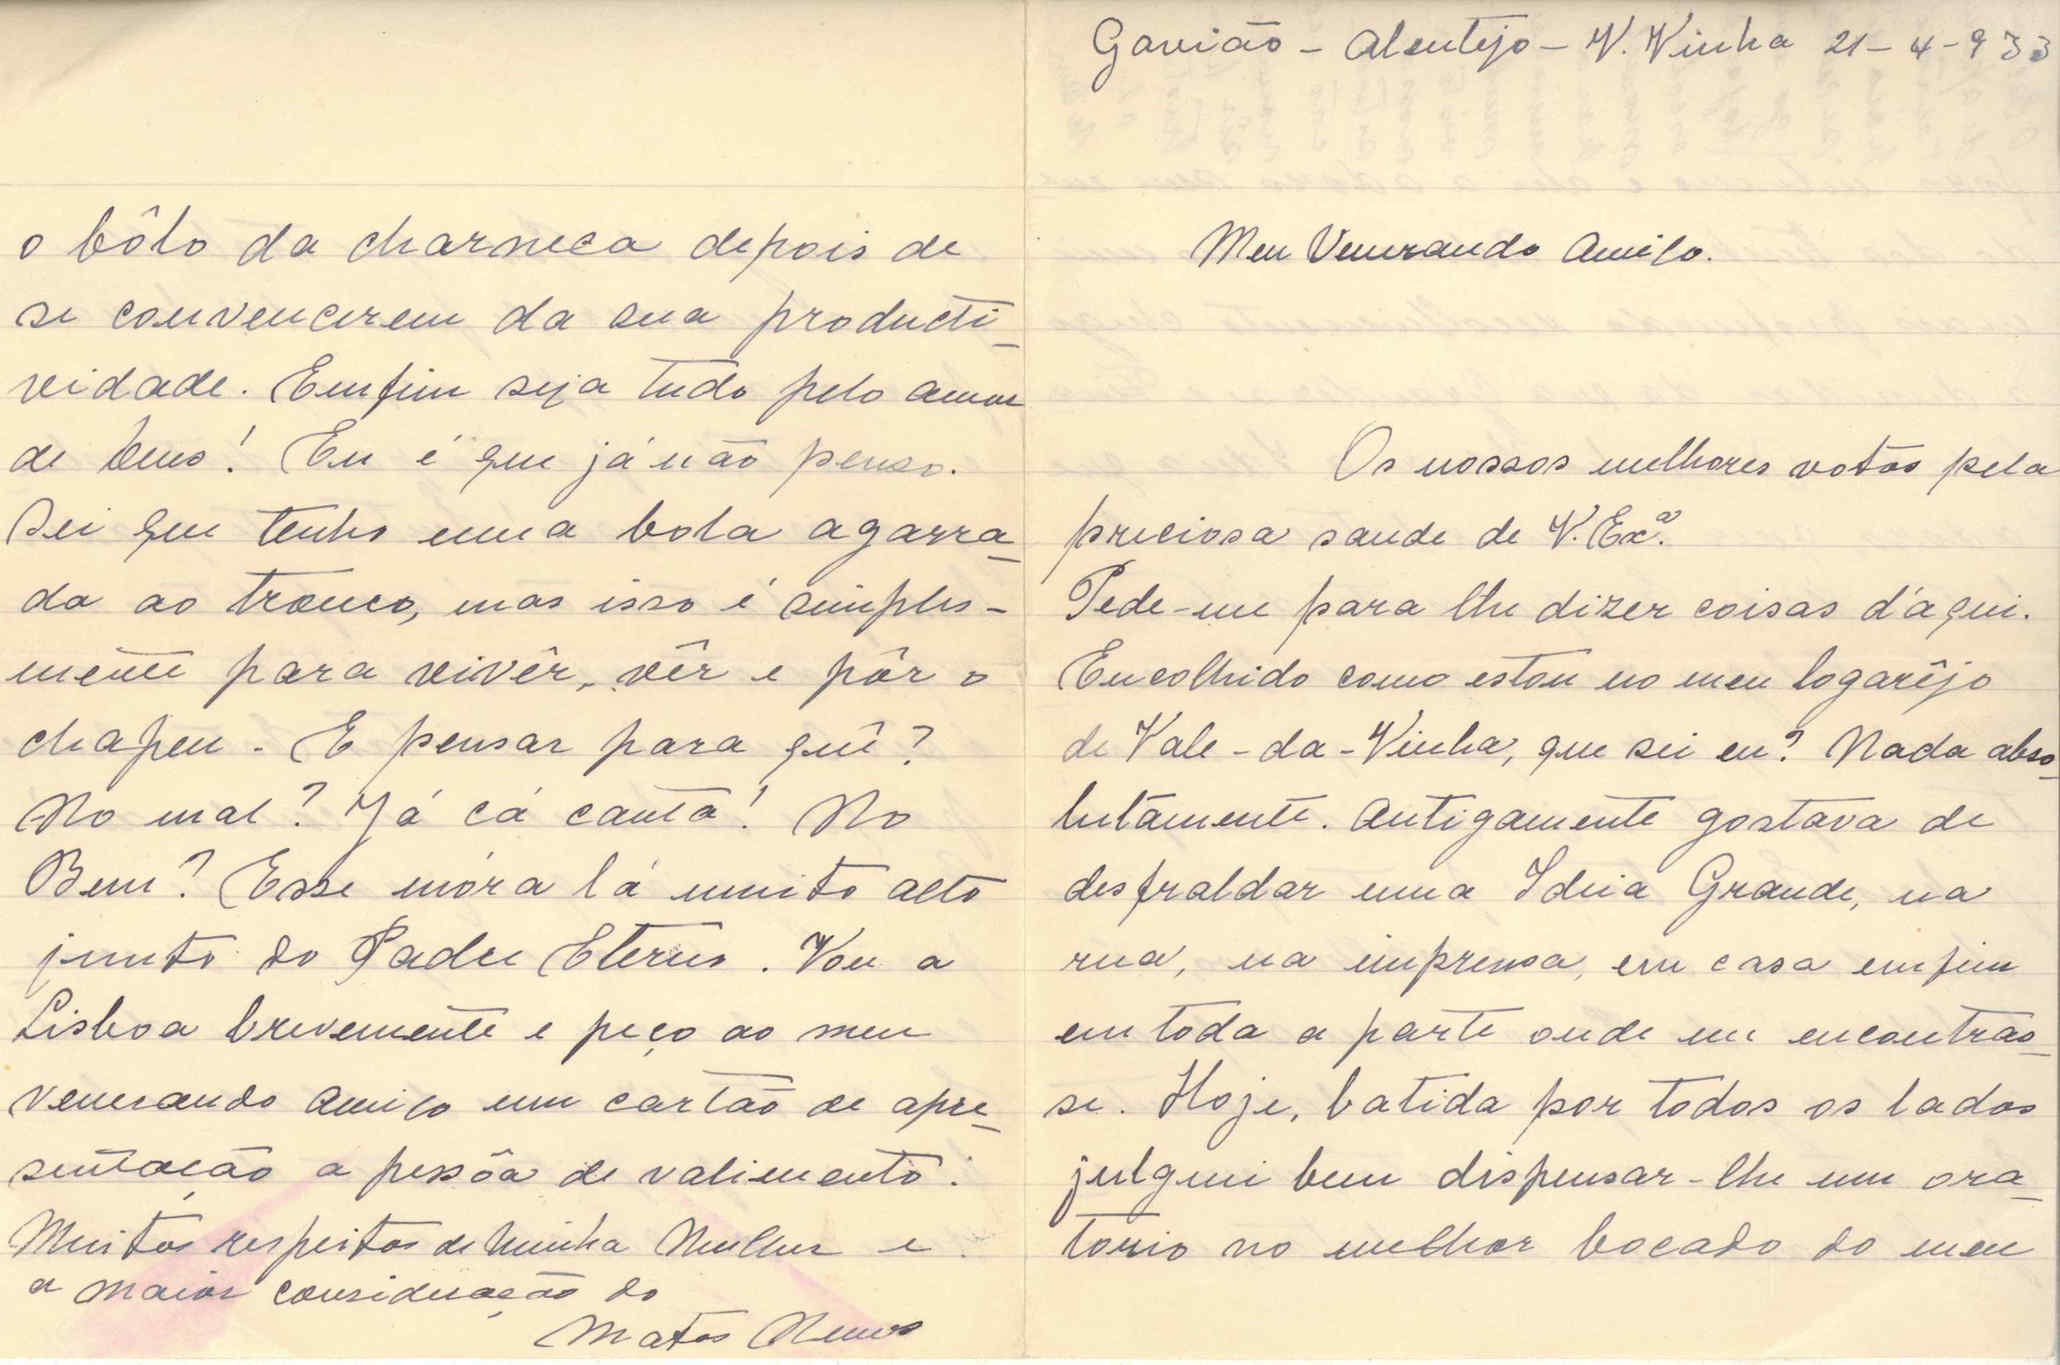 Gavião - Alentejo - V. Vinha 21-4-933
Meu Venerando Amigo.
Os nossos melhores votos pela
preciosa saude de V. Exª.
Pede-me para lhe dizer coisas d'aqui.
Encolhido como estou no meu logarêjo
de Vale-da-Vinha, que sei eu? Nada abso-
lutamente. Antigamente gostava de
desfraldar uma Ideia Grande, na
rua, na imprensa, em casa emfim
em toda a parte onde me encontras-
se. Hoje, batida por todos os lados
julguei bem dispensar-lhe um ora-
torio no melhor bocado do meu
o bôlo da charneca depois de
se convencerem da sua producti-
vidade. Emfim seja tudo pelo amor
de Deus! Eu é que já não penso.
Sei que tenho uma bola agarra-
da ao tronco, mas isso é simples-
mente para vivêr, vêr e pôr o
chapeu. E pensar para quê?
No mal? Já cá canta! No
Bem? Esse móra lá muito alto
junto do Padre Eterno. Vou a
Lisboa brevemente e peço ao meu
Venerando Amigo um cartão de apre-
sentação a pessôa de valimento.
Muitos respeitos de minha Mulher e
a maior consideração do
Matos Neves